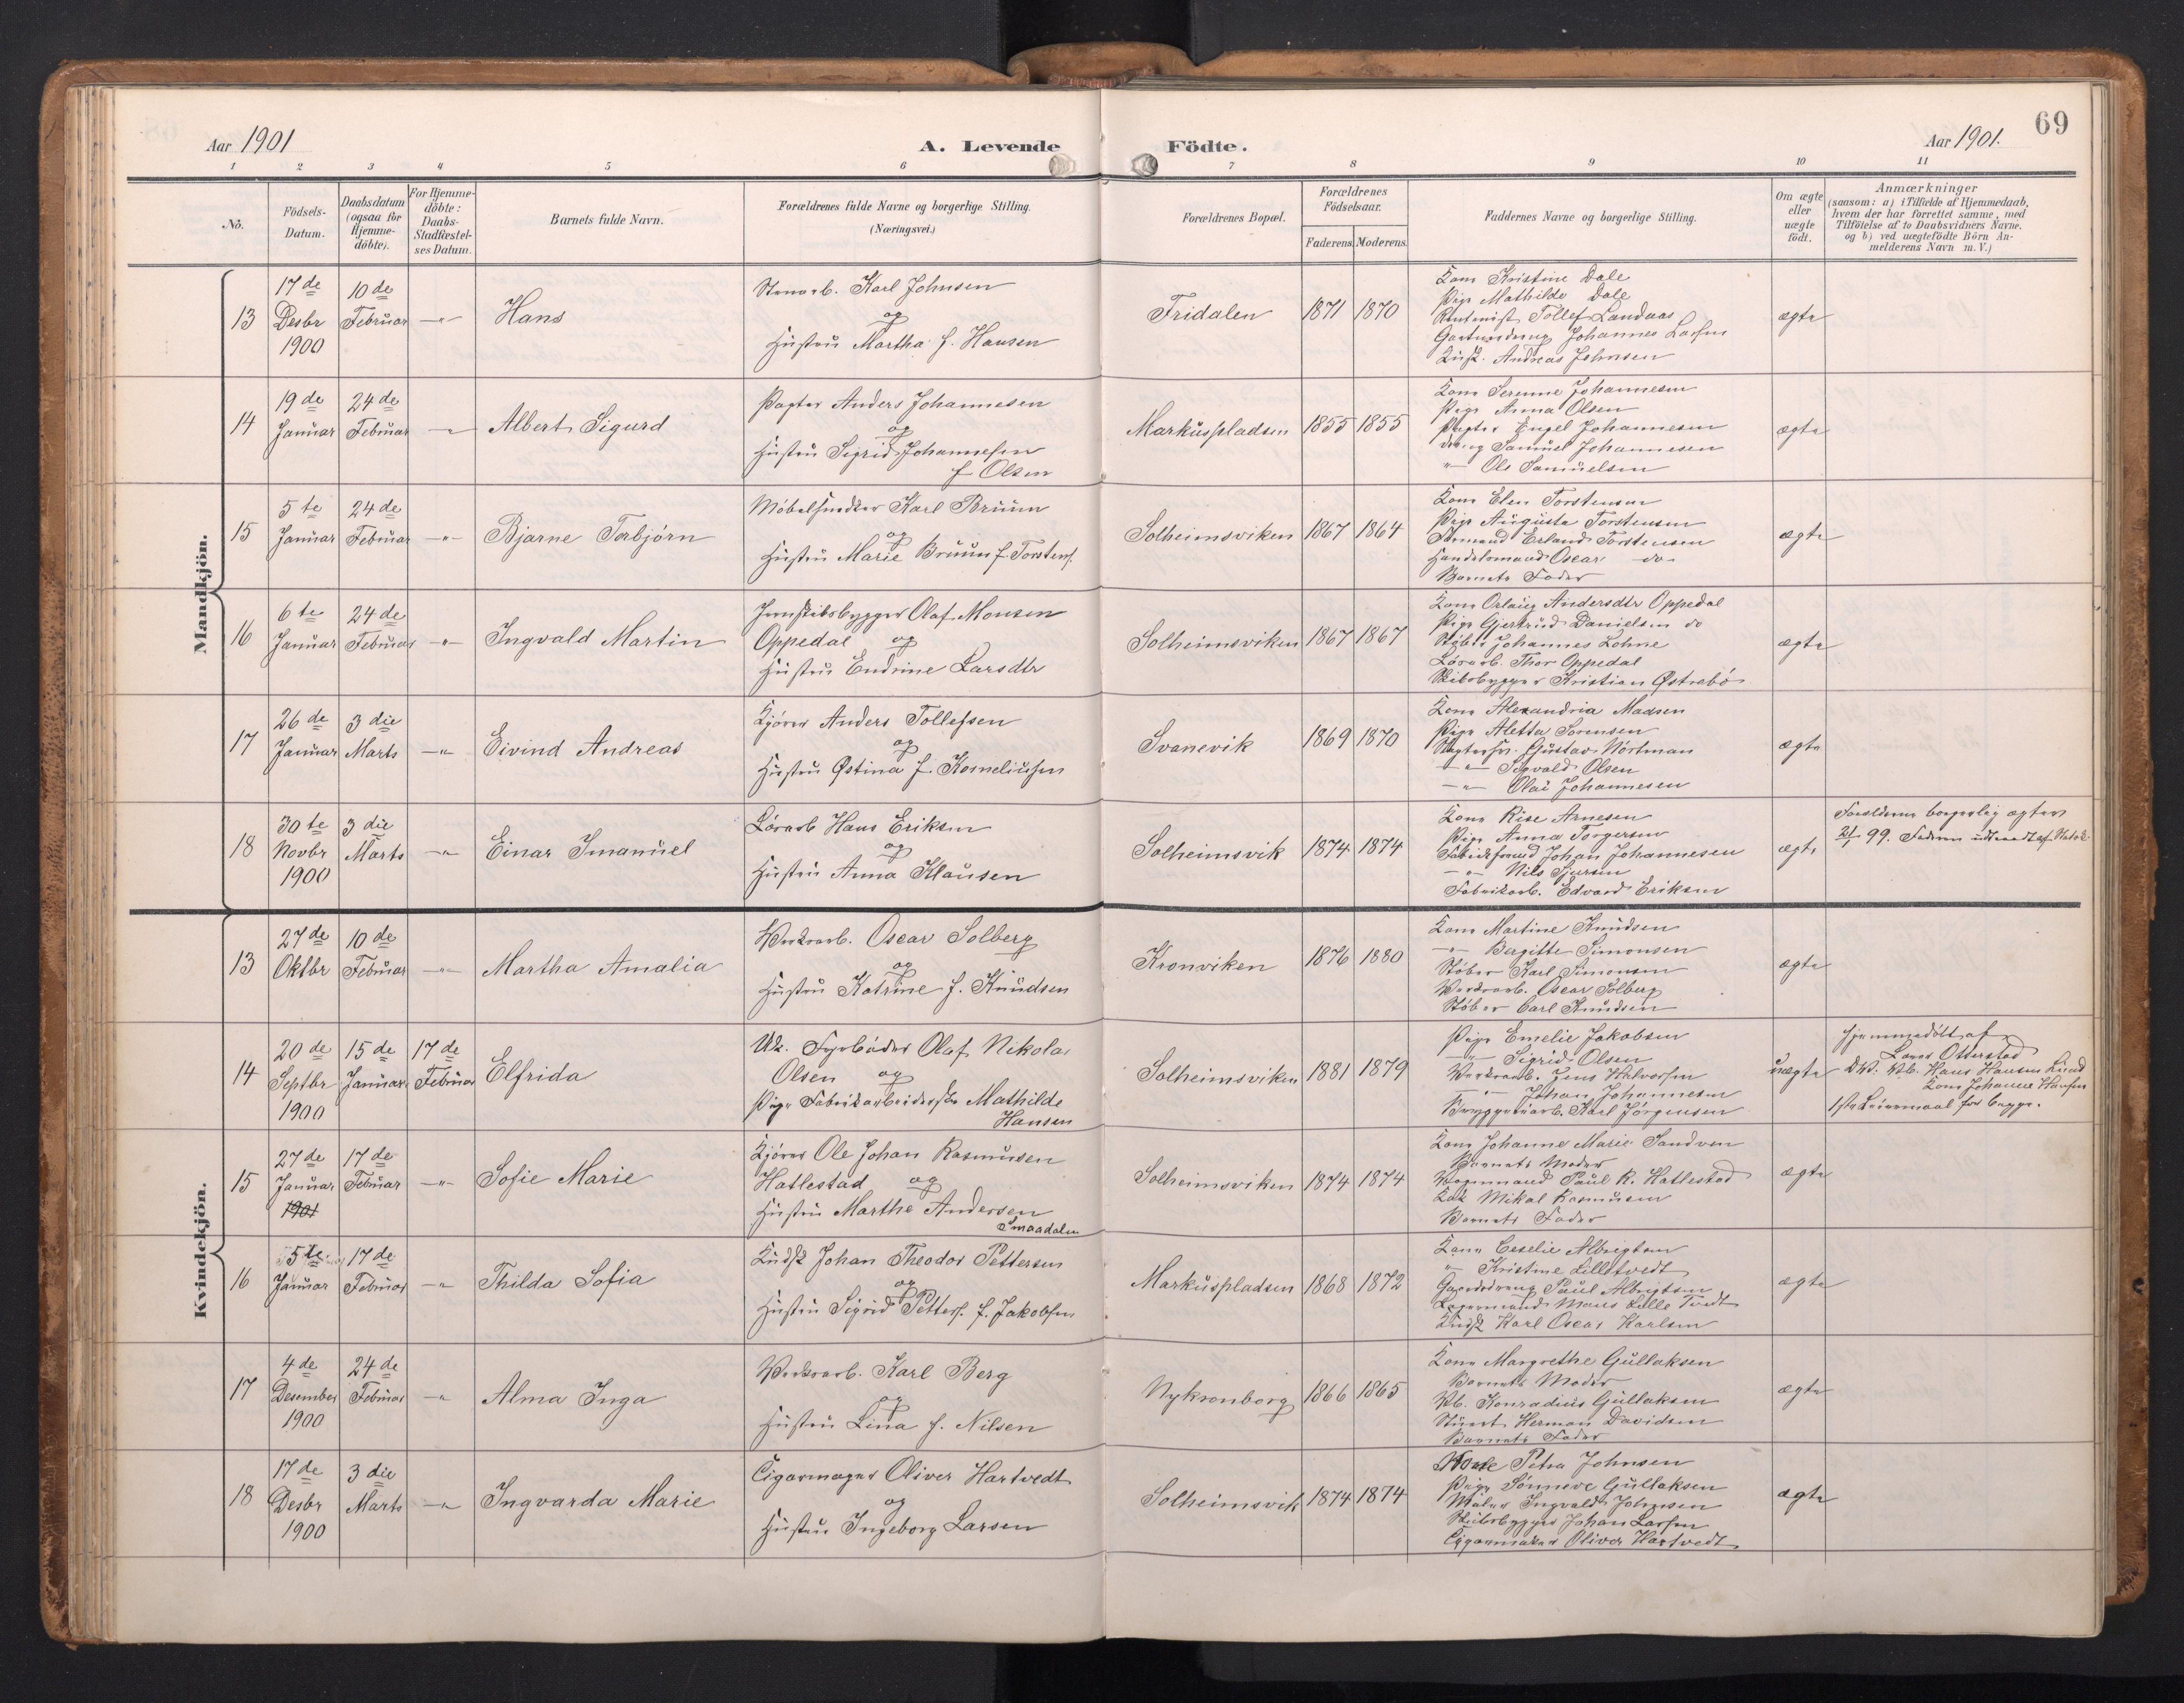 69
Aar 1901
A. Levende Födte.
Aar 1901.
1 2 3 4 5 6 7 8 9 10 11
No.
Födsels-
Datum.
Daabsdatum
(ogsaa for
Hjemme-
döbte).
For Hjemme-
döbte:
Daabs-
Stadfæstel-
ses Datum.
Barnets fulde Navn.
Forældrenes fulde Navne og borgerlige Stilling.
(Næringsvei.)
Forældrenes Bopæl.
Forældrenes
Födselsaar.
Faderens. Moderens.
Faddernes Navne og borgerlige Stilling.
Om ægte
eller
uægte
födt.
Anmærkninger
(saasom: a) i Tilfælde af Hjemmedaab,
hvem der har forrettet samme, med
Tilföielse af to Daabsvidners Navne.
og b) ved uægtefödte Börn An-
melderens Navn m. V.)
Mandkjön.
13
17de
Desbr
1900
10de
Februar
-"-
Hans
Karl Johnsen
og
Hustru Martha f. Hansen
Fridalen
1871 1870
Kone Kristine Dale
Pige Mathilde Dale
Tollef Landaas
Johannes Larsen
Kusk. Andreas Johnsen
ægte
14
19de
Januar
24de
Februar
-"-
Albert Sigurd
Pagter Anders Johannesen
og
Hustru Sigrid Johannesen
f Olsen
Markuspladsen
1855 1855
Kone Serenne Johannesen
Pige Anna Olsen
Pagter Engel Johannesen
Dreng Samuel Johannesen
-"- Ole Samuelsen
ægte
15
5te
Januar
24de
Februar
-"-
Bjarne Torbjørn
Möbelsnedker Karl Bruun
og
Hustru Marie Bruun f. Torstens.
Solheimsviken
1867 1864
Kone Elen Torstensen
Pige Augusta Torstensen
Formand Erland Torstensen
Handelsmand Oscar do
Barnets Fader
ægte
16
6te
Januar
24de
Februar
-"-
Ingvald Martin
Jernskibsbygger Olaf Monsen
Oppedal og
Hustru Endrine Larsdtr
Solheimsviken
1867 1867
Kone Orlaug Andersdtr Oppedal
Pige Gjertrud Danielsen do
Støber Johannes Lohne
Lørarb. Thor Oppedal
Skibsbygger Kristian Østrebø
ægte
17
26de
Januar
3die
Marts
-"-
Eivind Andreas
Kjører Anders Tollefsen
og
Hustru Østina f. Korneliusen
Svanevik
1869 1870
Kone Alexandria Madsen
Pige Aletta Sorensen
Gustav Nortman
-"- Sigvald Olsen
-"- Olai Johannesen
ægte
18
30te
Novbr
1900
3die
Marts
-"-
Einar Imanuel
Lørarb Hans Eriksen
og
Hustru Anna Klausen
Solheimsvik
1874 1874
Kone Rise Arnesen
Pige Anna Torgersen
Johan Johannesen
-"- Nils Sjursen
Fabrikarb. Edvard Eriksen
ægte
Forældrene borgerlig ægtev.
99. Faderen udtraadt af Statsk.
Kvindekjön.
13
27de
Oktbr
10de
Februar
-"-
Martha Amalia
Verksarb. Oscar Solberg
og
Hustru Katrine f. Knudsen
Kronviken
1876 1880
Kone Martine Knudsen
-"- Bergitte Simonsen
Støber Karl Simonsen
Verksarb. Oscar Solberg
Støber Carl Knudsen
ægte
14
20de
Septbr
1900
15de
Januar
17de
Februar
Elfrida
Uk. Fyrbøder Olaf Nikolai
Olsen og
Pige Fabrikarbeiderske Mathilde
Hansen
Solheimsviken
1881 1879
Pige Emelie Jakobsen
-"- Sigrid Olsen
Verksarb. Jens Halvorsen
-"- Johan Johannesen
Bryggeriarb. Karl Jörgensen
uægte
Hjemmedöbt af
Lars Otterstad
Hans Hansen Lund
Kone Johanne Hansen
1ste Leiermaal for begge.
15
27de
Januar
1901
17de
Februar
-"-
Sofie Marie
Kjører Ole Johan Rasmusen
Hatlestad og
Hustru Marthe Andersen
Smaadalen
Solheimsviken
1874 1874
Kone Johanne Marie Sandven
Barnets Moder
Vognmand Paul R. Hatlestad
Mikal Rasmusen
Barnets Fader
ægte
16
5te
Januar
17de
Februar
-"-
Thilda Sofia
Kudsk Johan Theodor Pettersen
og
Hustru Sigrid Petters. f. Jakobsen
Markuspladsen
1868 1872
Kone Ceselie Albrigtsen
" Kristine Lilletvedt
Gaardsdreng Paul Albrigtsen
Lagermand Mons Lille Tvedt
Kudsk Karl Oscar Karlsen
ægte
17
4de
Desember
1900
24de
Februar
-"-
Alma Inga
Verksarb. Karl Berg
og
Hustru Lina f. Nilsen
Nykronborg
1866 1865
Kone Margrethe Gullaksen
Barnets Moder
Vb. Konradius Gullaksen
Stuert Herman Davidsen
Barnets Fader
ægte
18
17de
Desbr
1900
3die
Marts
-"-
Ingvarda Marie
Cigarmager Oliver Hartvedt
og
Hustru Ingeborg Larsen
Solheimsvik
1874 1874
Kone Petra Johnsen
Pige Sønneve Gullaksen
Maler Ingvald Johnsen
Skibsbygger Johan Larsen
Cigarmaker Oliver Hartvedt
ægte